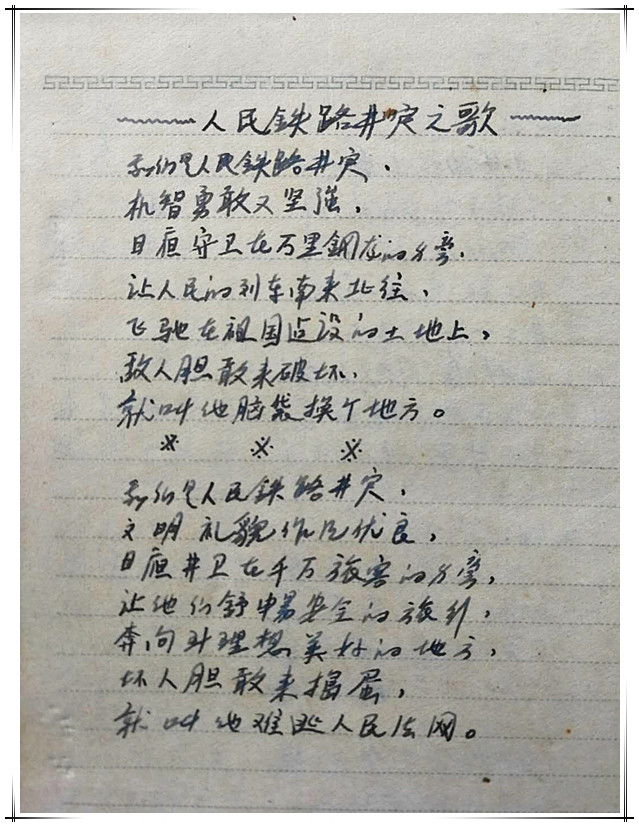 人民铁路井察之歌
我们是人民铁路井察，
机智勇敢又坚强，
日夜守卫在万里钢龙的身旁，
让人民的列车南来北往，
飞驰在祖国建设的土地上，
敌人胆敢来破坏，
就叫他脑袋换个地方。
※ ※ ※
我们是人民铁路井察，
文明礼貌作风优良，
日夜井卫在千万旅客的身旁，
让他们舒畅安全的旅行，
奔向理想美好的地方，
坏人胆敢来捣蛋，
就叫他难逃人民法网。